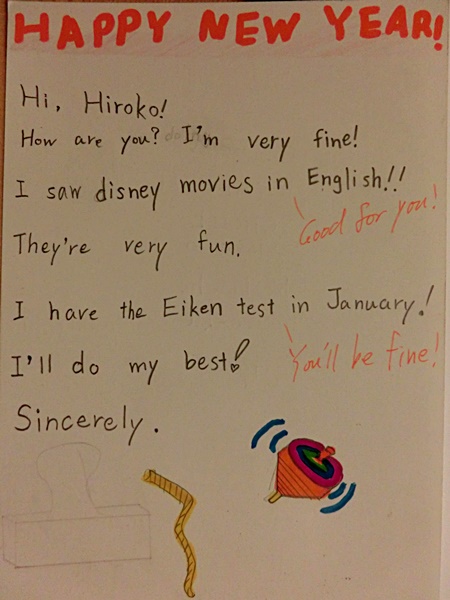 HAPPY NEW YEAR!
Hi, Hiroko!
How are you? I'm very fine!
I saw disney movies in English!!
Good for you!
They're very fun.
I have the Eiken test in January!
You'll be fine!
I'll do my best!
Sincerely.